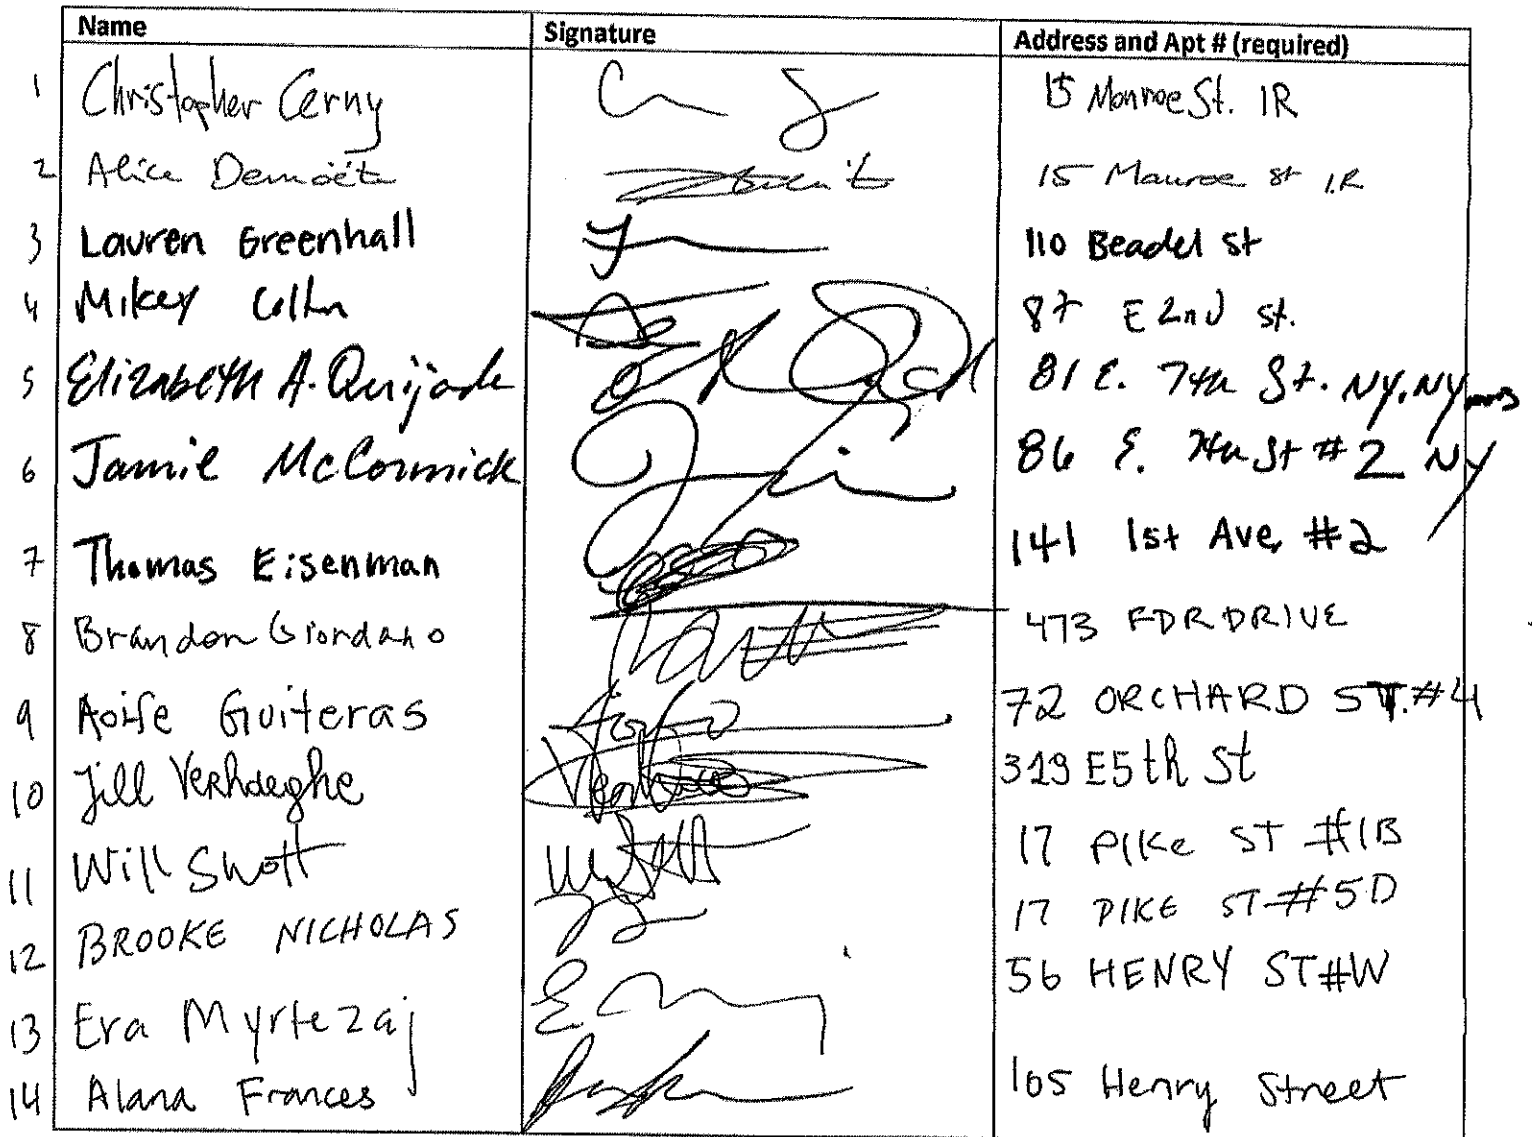 Name Signature Address and Apt # (required)
1 Christopher Cerny 15 Monroe St. 1R
2 Alice 15 Monroe st 1R
3 Lauren Greenhall 110 Beadel st
4 Mikey 87 E 2nd st.
5 Elizabeth A. Quijada 81 E. 7th St. NY, NY
6 Jamie McCormick 86 E. 7th St #2 NY
7 Thomas Eisenman 141 1st Ave, #2
8 Brandon Giordano 473 FDR DRIVE
9 Aoife Guiteras 72 ORCHARD ST. #4
10 Jill Verhaeghe 319 E5th St
11 Will Shott 17 PIKE ST #1B
12 BROOKE NICHOLAS 17 PIKE ST #5D
13 Era Myrtezaj 56 HENRY ST #W
14 Alana Frances 105 Henry Street